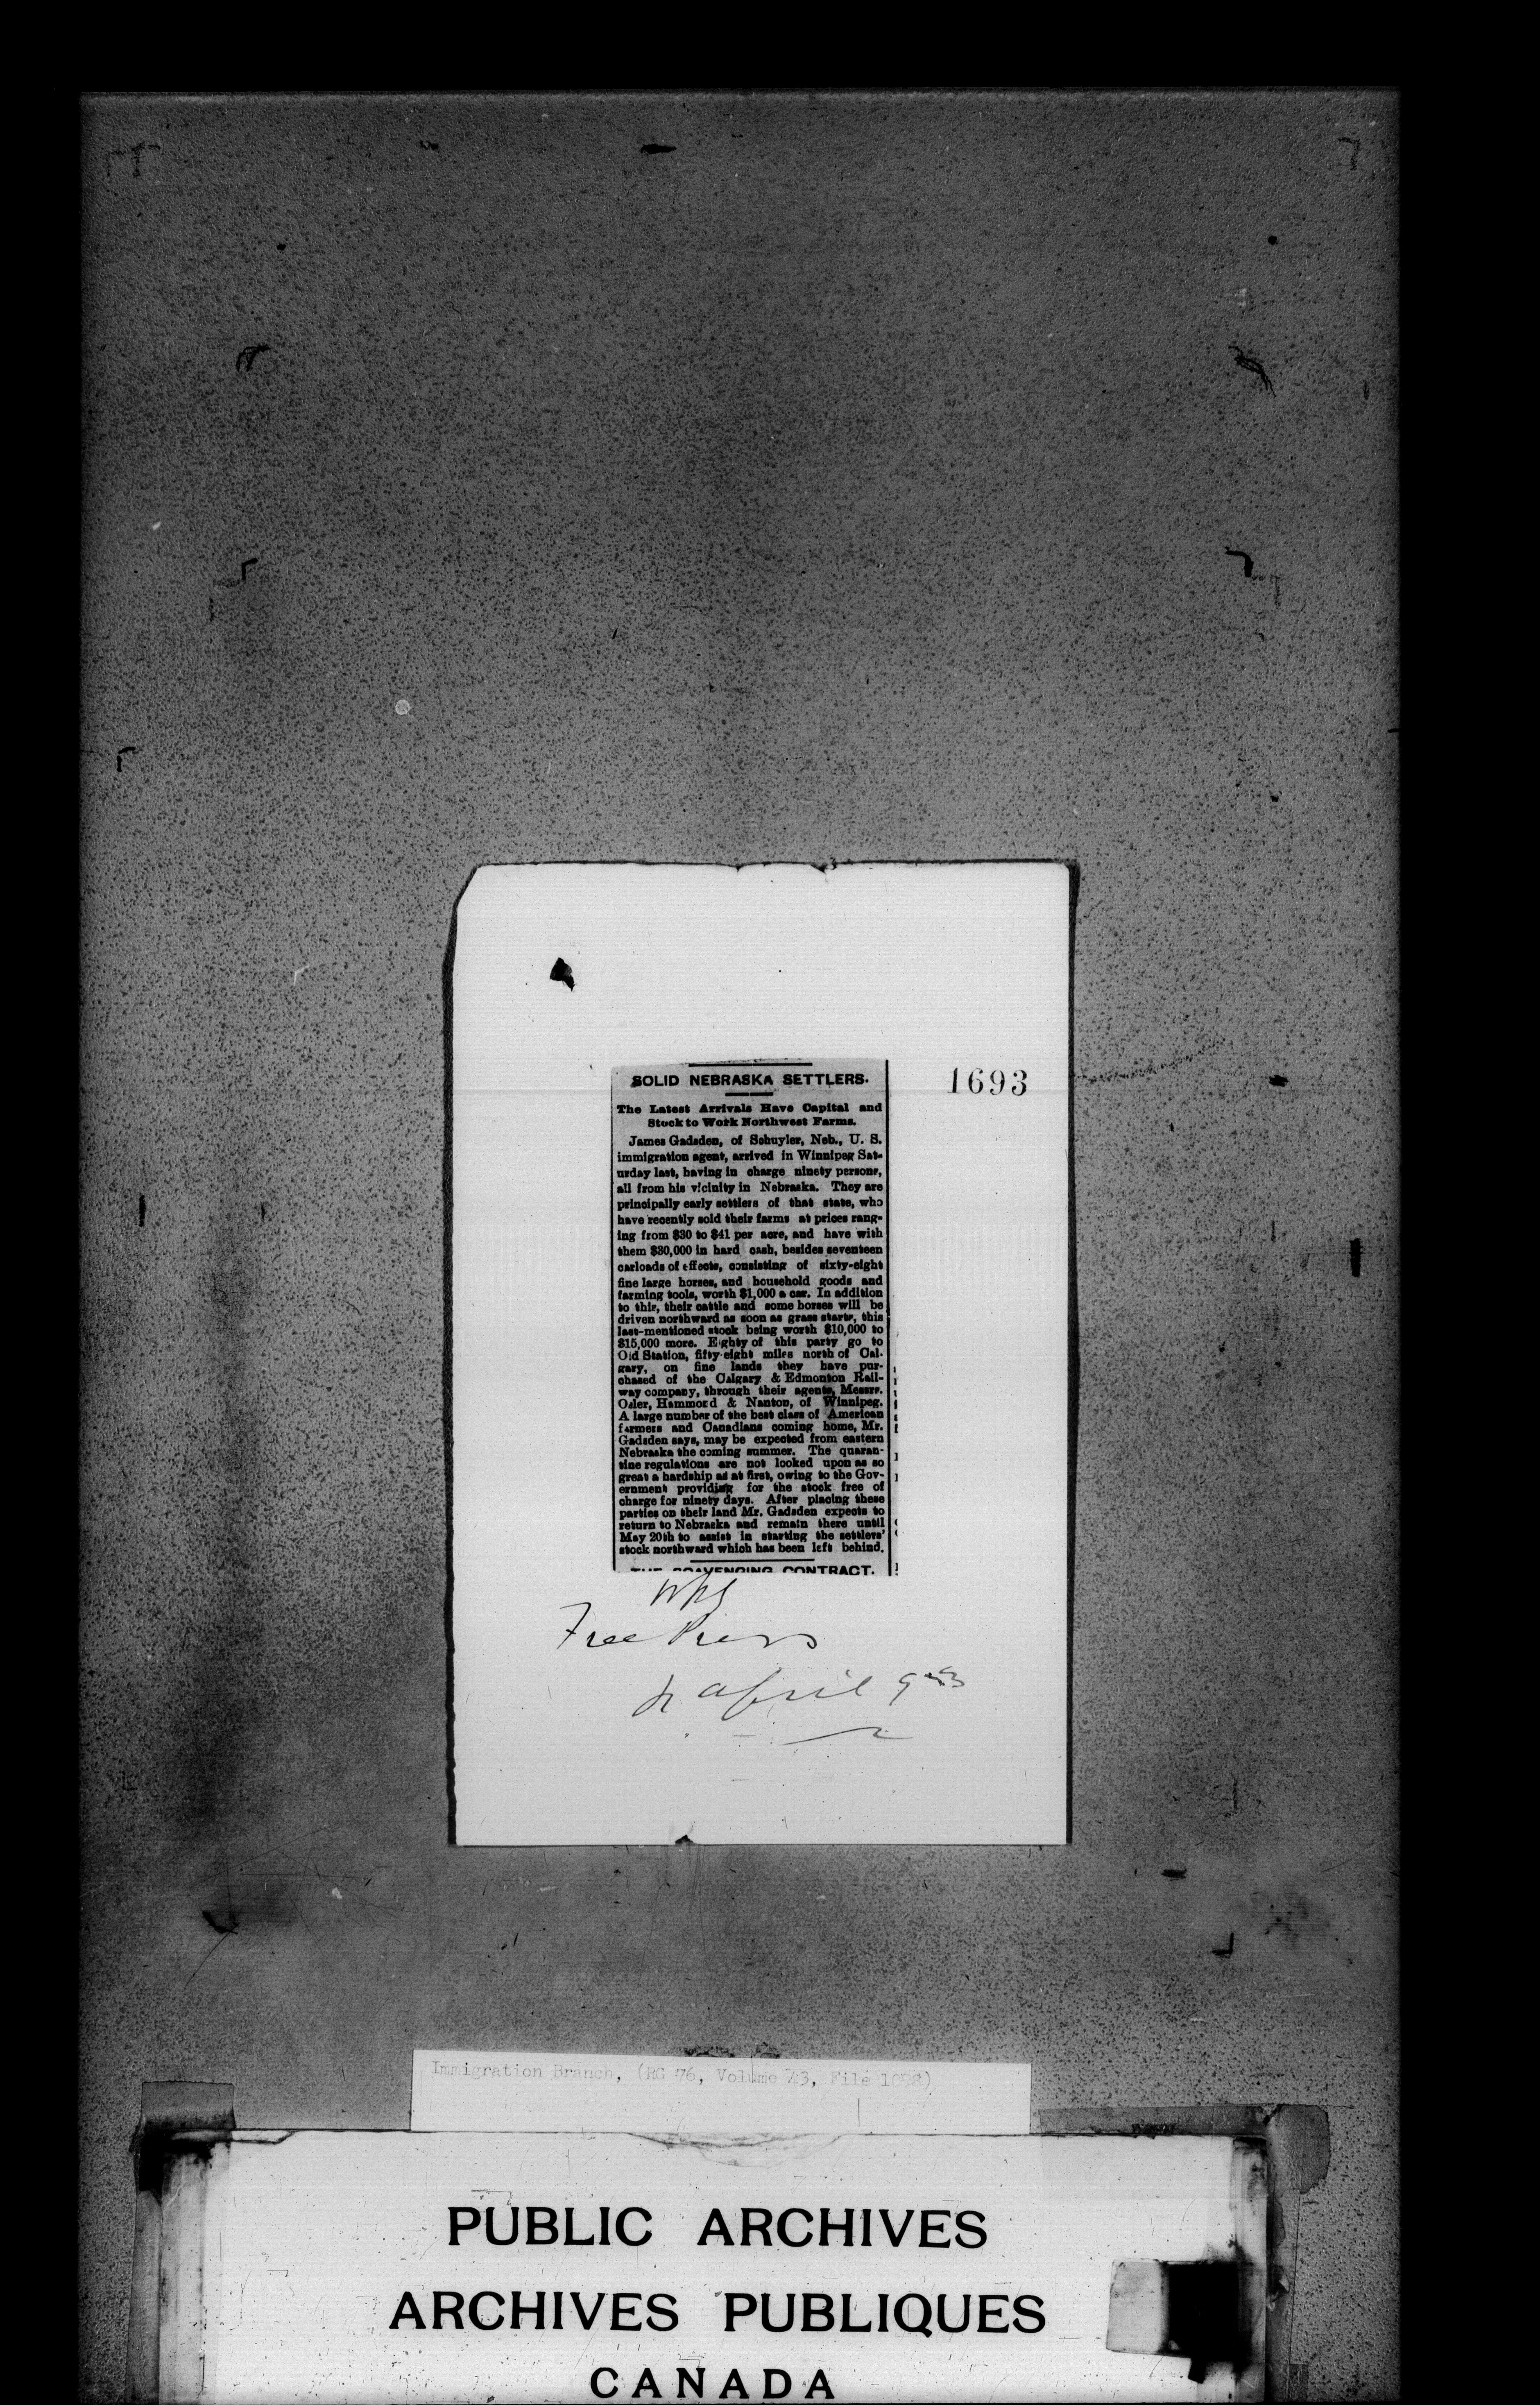 1693
SOLID NEBRASKA SETTLERS.
The Latest Arrivals Have Capital and
Stock to Work Northwest Farms.
James Gadsden, of Schuyler, Neb., U. S.
immigration agent, arrived in Winnipeg Sat-
urday last, having in charge ninety persons,
all from his vicinity in Nebraska. They are
principally early settlers of that state, who
have recently sold their farms at prices rang-
ing from $30 to $41 per acre, and have with
them $30,000 in hard cash, besides seventeen
carloads of effects, consisting of sixty-eight
fine large horses, and household goods and
farming tools, worth $1,000 a car. In addition
to this, their cattle and some horses will be
driven northward as soon as grass starts, this
last-mentioned stock being worth $10,000 to
$15,000 more. Eighty of this party go to
Old Station, fifty-eight miles north of Cal-
gary, on fine lands they have pur-
chased of the Calgary & Edmonton Rail-
way company, through their agents, Messrs.
Osler, Hammond & Nanton, of Winnipeg.
A large number of the best class of American
farmers and Canadians coming home, Mr.
Gadsden says, may be expected from eastern
Nebraska the coming summer. The quaran-
tine regulations are not looked upon as so
great a hardship as at first, owing to the Gov-
ernment providing for the stock free of
charge for ninety days. After placing these
parties on their land Mr. Gadsden expects to
return to Nebraska and remain there until
May 20th to assist in starting the settlers'
stock northward which has been left behind.
THE SCAVENGING CONTRACT.
Wpg
Free Press
April
Immigration Branch, (RG 76, Volume File
PUBLIC ARCHIVES
ARCHIVES PUBLIQUES
CANADA